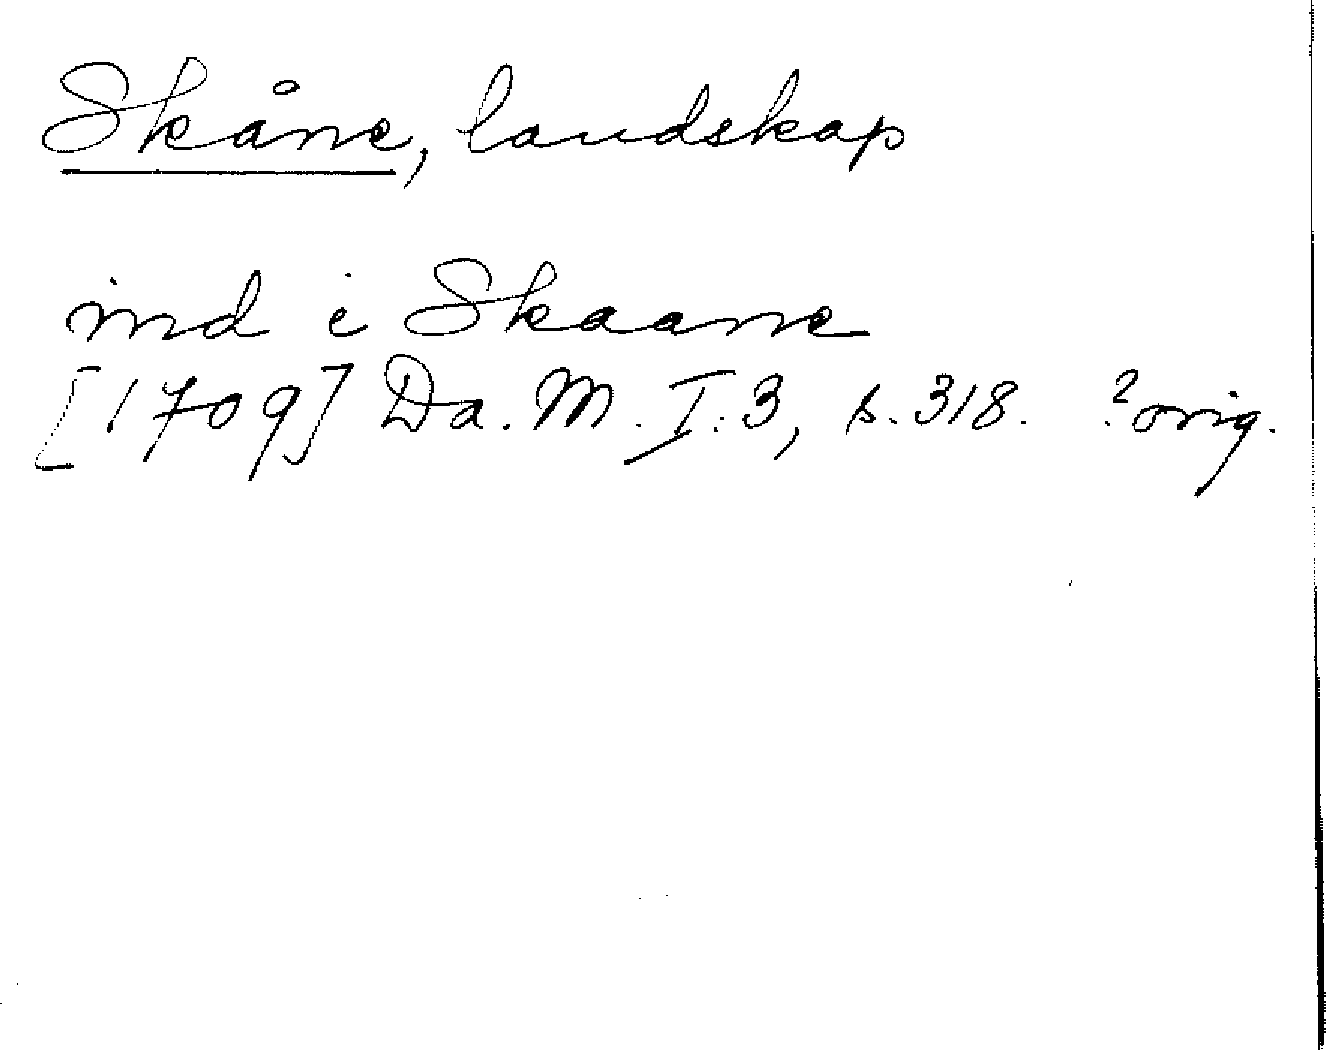 Skåne, landskap
ind i Skaane
[1709] Da. M. I:3, s. 318. ? orig.